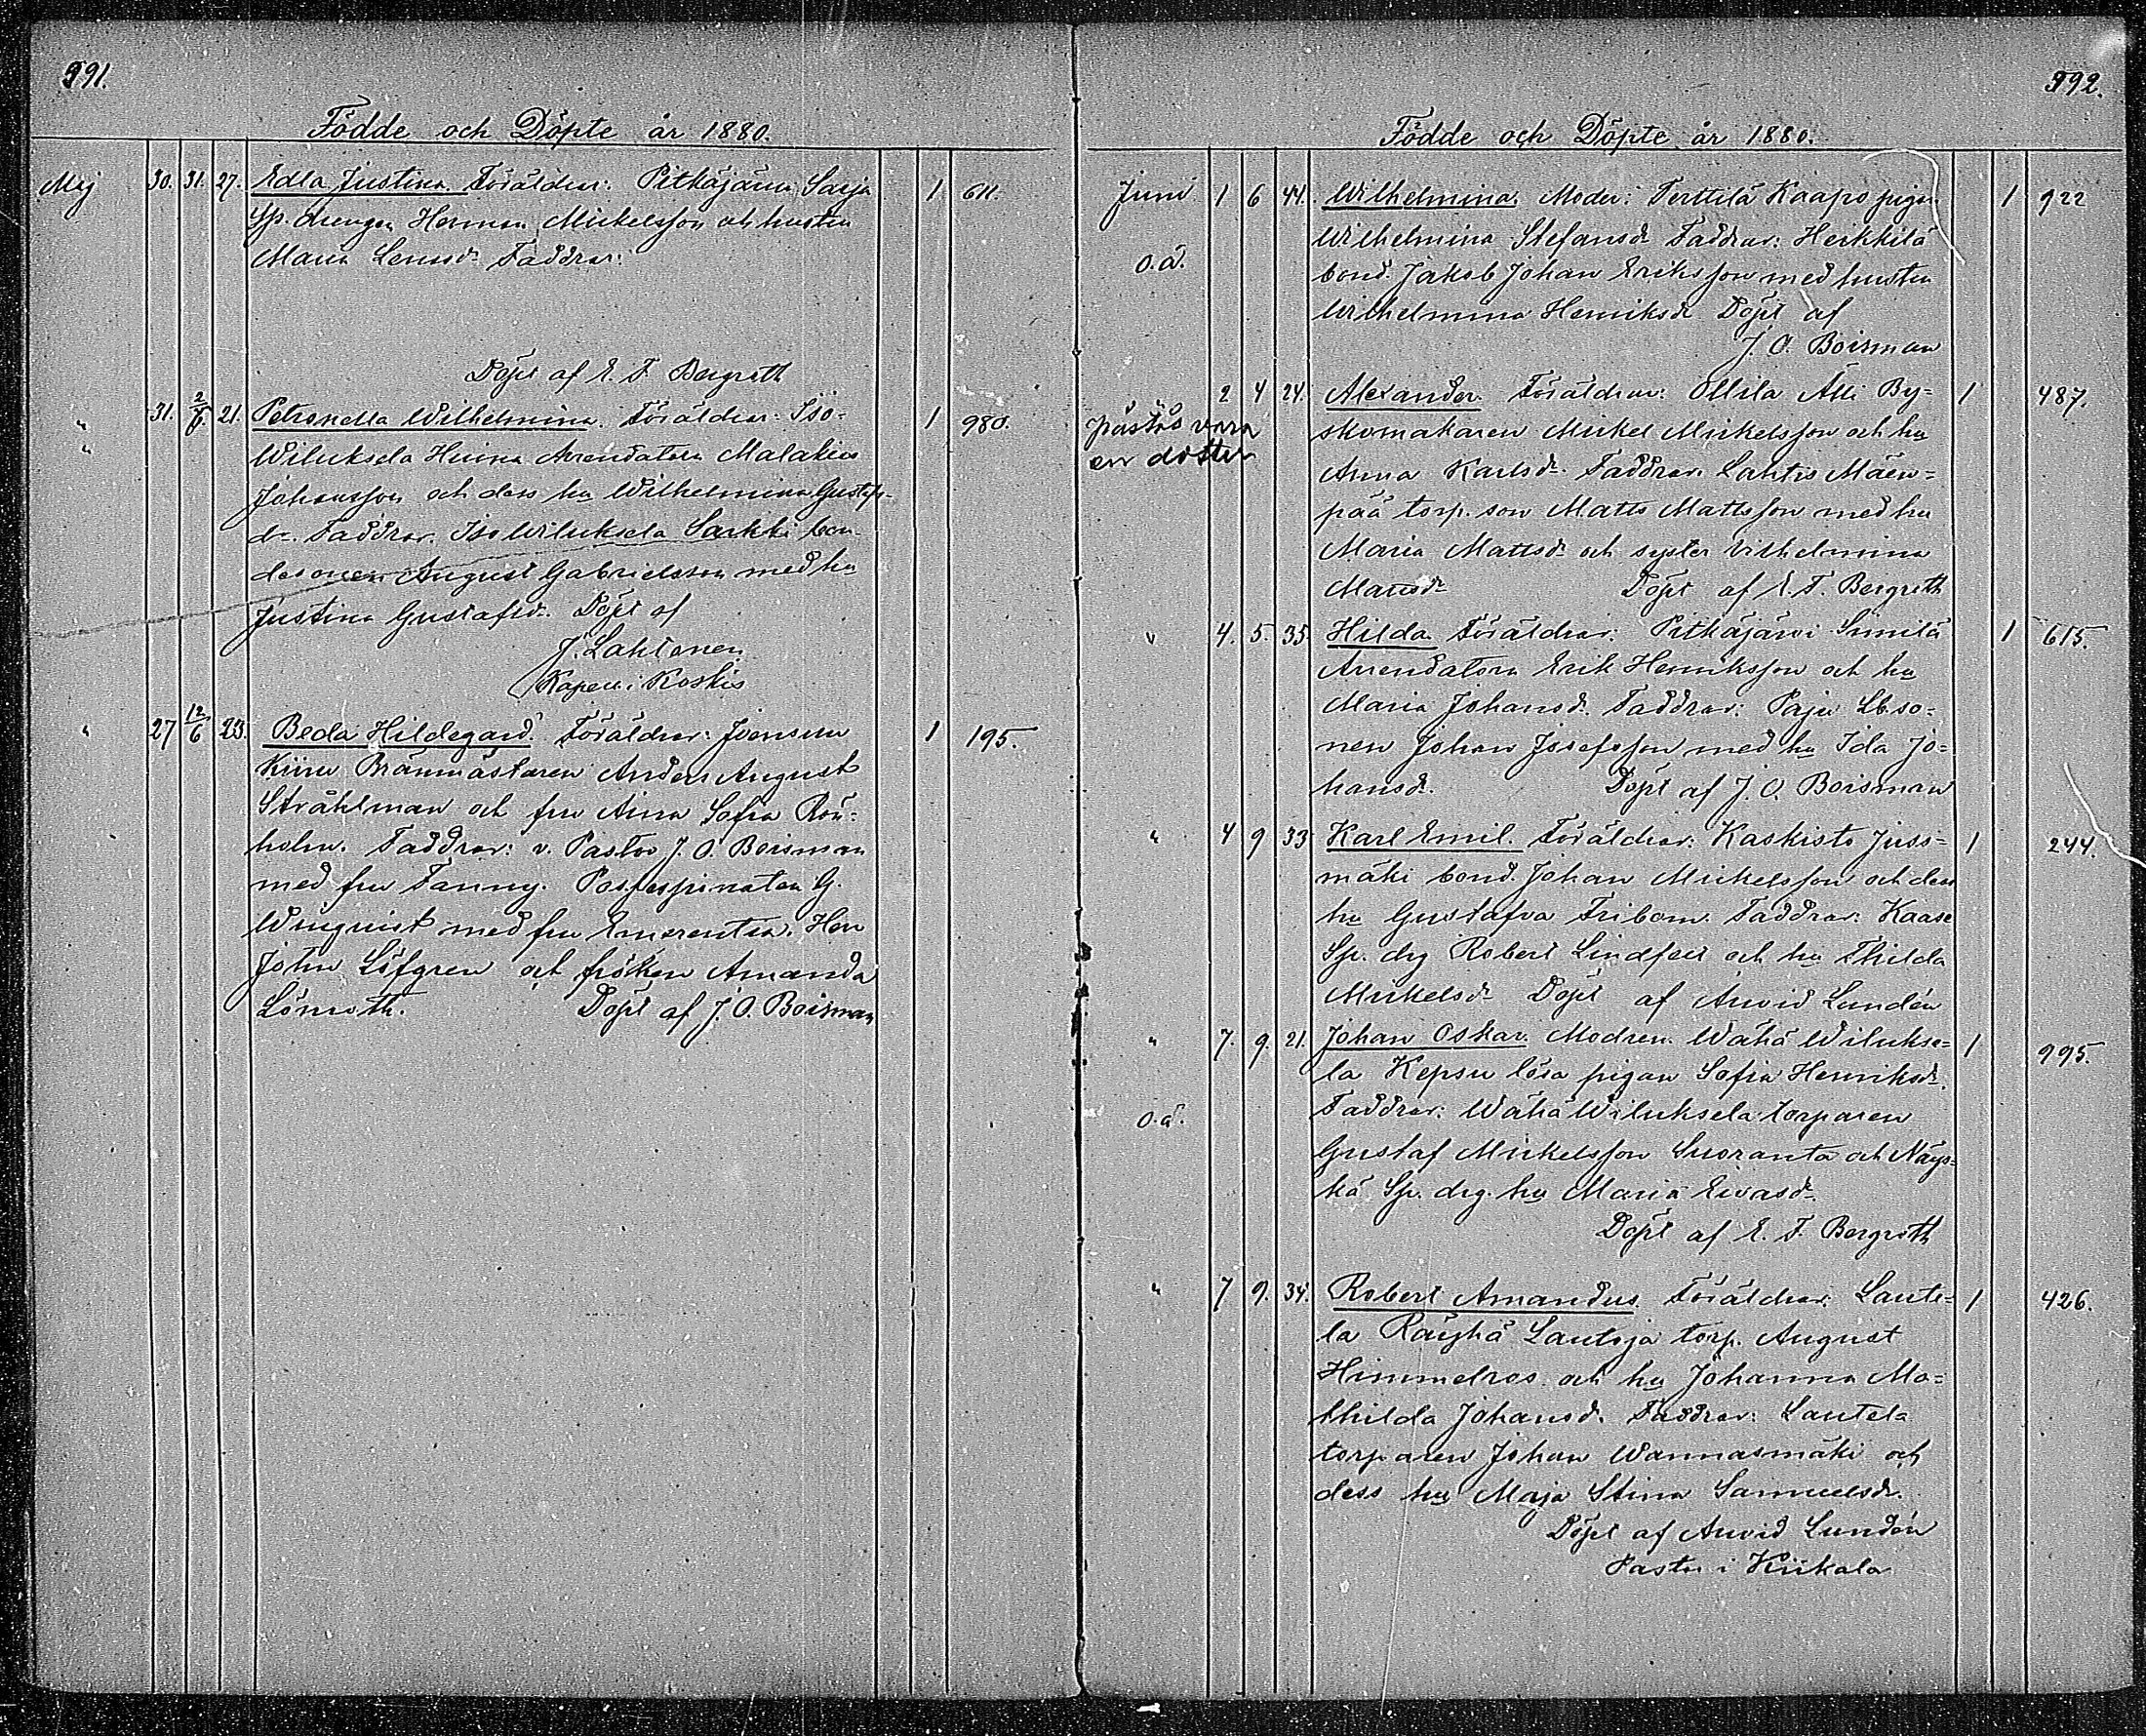 391.
Födde och Döpte år 1880.
Maj 30. 31. 27. Edla Justina. Föräldrar: Pitkäjärvi Sarja 1 611.
Sp. drengen Herman Mickelsson och hustru
Maria Leenasdr. Faddrar:
Döpt af E. F. Bergroth
" 31. 2/6. 21. Petronella Wilhelmina. Föräldrar: Iso- 1 980.
" Wiluksela Huina Arrendatorn Malakias
Johansson och dess hu Wilhelmina Gustafs-
dr. Faddrar. Iso Wiluksela Sarkki bon-
desonen August Gabrielsson med hu
Justina Gustafsdr. Döpt af
J. Lahtonen
Kapell. i Koskis
" 27 12/6 23. Beda Hildegard. Föräldrar: Joensuu 1 195.
Kiiru Brännmästaren Anders August
Stråhlman och fru Aina Sofia Rön-
holm. Faddrar: v. Pastor J. O. Boisman
med fru Fanny.
Winquist med fru Emerentia. Herr
John Löfgren och fröken Amanda
Lönroth. Döpt af J. O. Boisman
392.
Födde och Döpte år 1880.
Juni 1 6 44. Wilhelmina. Moder: Terttilä Kaapo pigan 1 922
Wilhelmina Stefansdr Faddrar: Heikkilä
o.ä. bond. Jakob Johan Eriksson med hustru
Wilhelmina Henriksdr Döpt af
J. O. Boisman
2 4 24. Alexander. Föräldrar: Ollila Alli By= 1 487.
påstås vara skomakaren Mickel Mickelsson och hu
en dotter Anna Karlsdr. Faddrar: Lahtis Mäen=
pää torp. son Matts Mattsson med hu
Maria Mattsdr och syster Vilhelmina
Mattsdr Döpt af E. F. Bergroth
" 4. 5. 35. Hilda. Föräldrar: Pitkäjärvi Simila 1 615.
Arrendatorn Erik Henriksson och hu
Maria Johansdr. Faddrar: Paju Lbso=
nen Johan Josefsson med hu Ida Jo=
hansdr. Döpt af J. O. Boisman
" 4 9 33 Karl Emil. Föräldrar: Kaskisto Juss= 1 244.
mäki bond. Johan Mickelsson och dess
hu Gustafva Fribom. Faddrar: Kaase
Sp. drg Robert Lindfelt och hu Thilda
Mickelsdr Döpt af Arvid Lundén
" 7. 9. 21. Johan Oskar. Modren. Wähä Wilukse= 1 995.
la Kepsu lösa pigan Sofia Henriksdr.
o.ä. Faddrar: Wähä Wiluksela torparen
Gustaf Mickelsson Suoranta och Näys=
kä Sp. drg. hu Maria Evasdr.
Döpt af E. F. Bergroth
" 7 9. 34. Robert Amandus. Föräldrar: Laute= 1 426.
la Räyhä Lautoja torp. August
Himmelros och hu Johanna Ma=
thilda Johansd. Faddrar: Lautela
torparen Johan Wannasmäki och
dess hu Maja Stina Samuelsdr.
Döpt af Arvid Lundén
Pastor i Kiikala